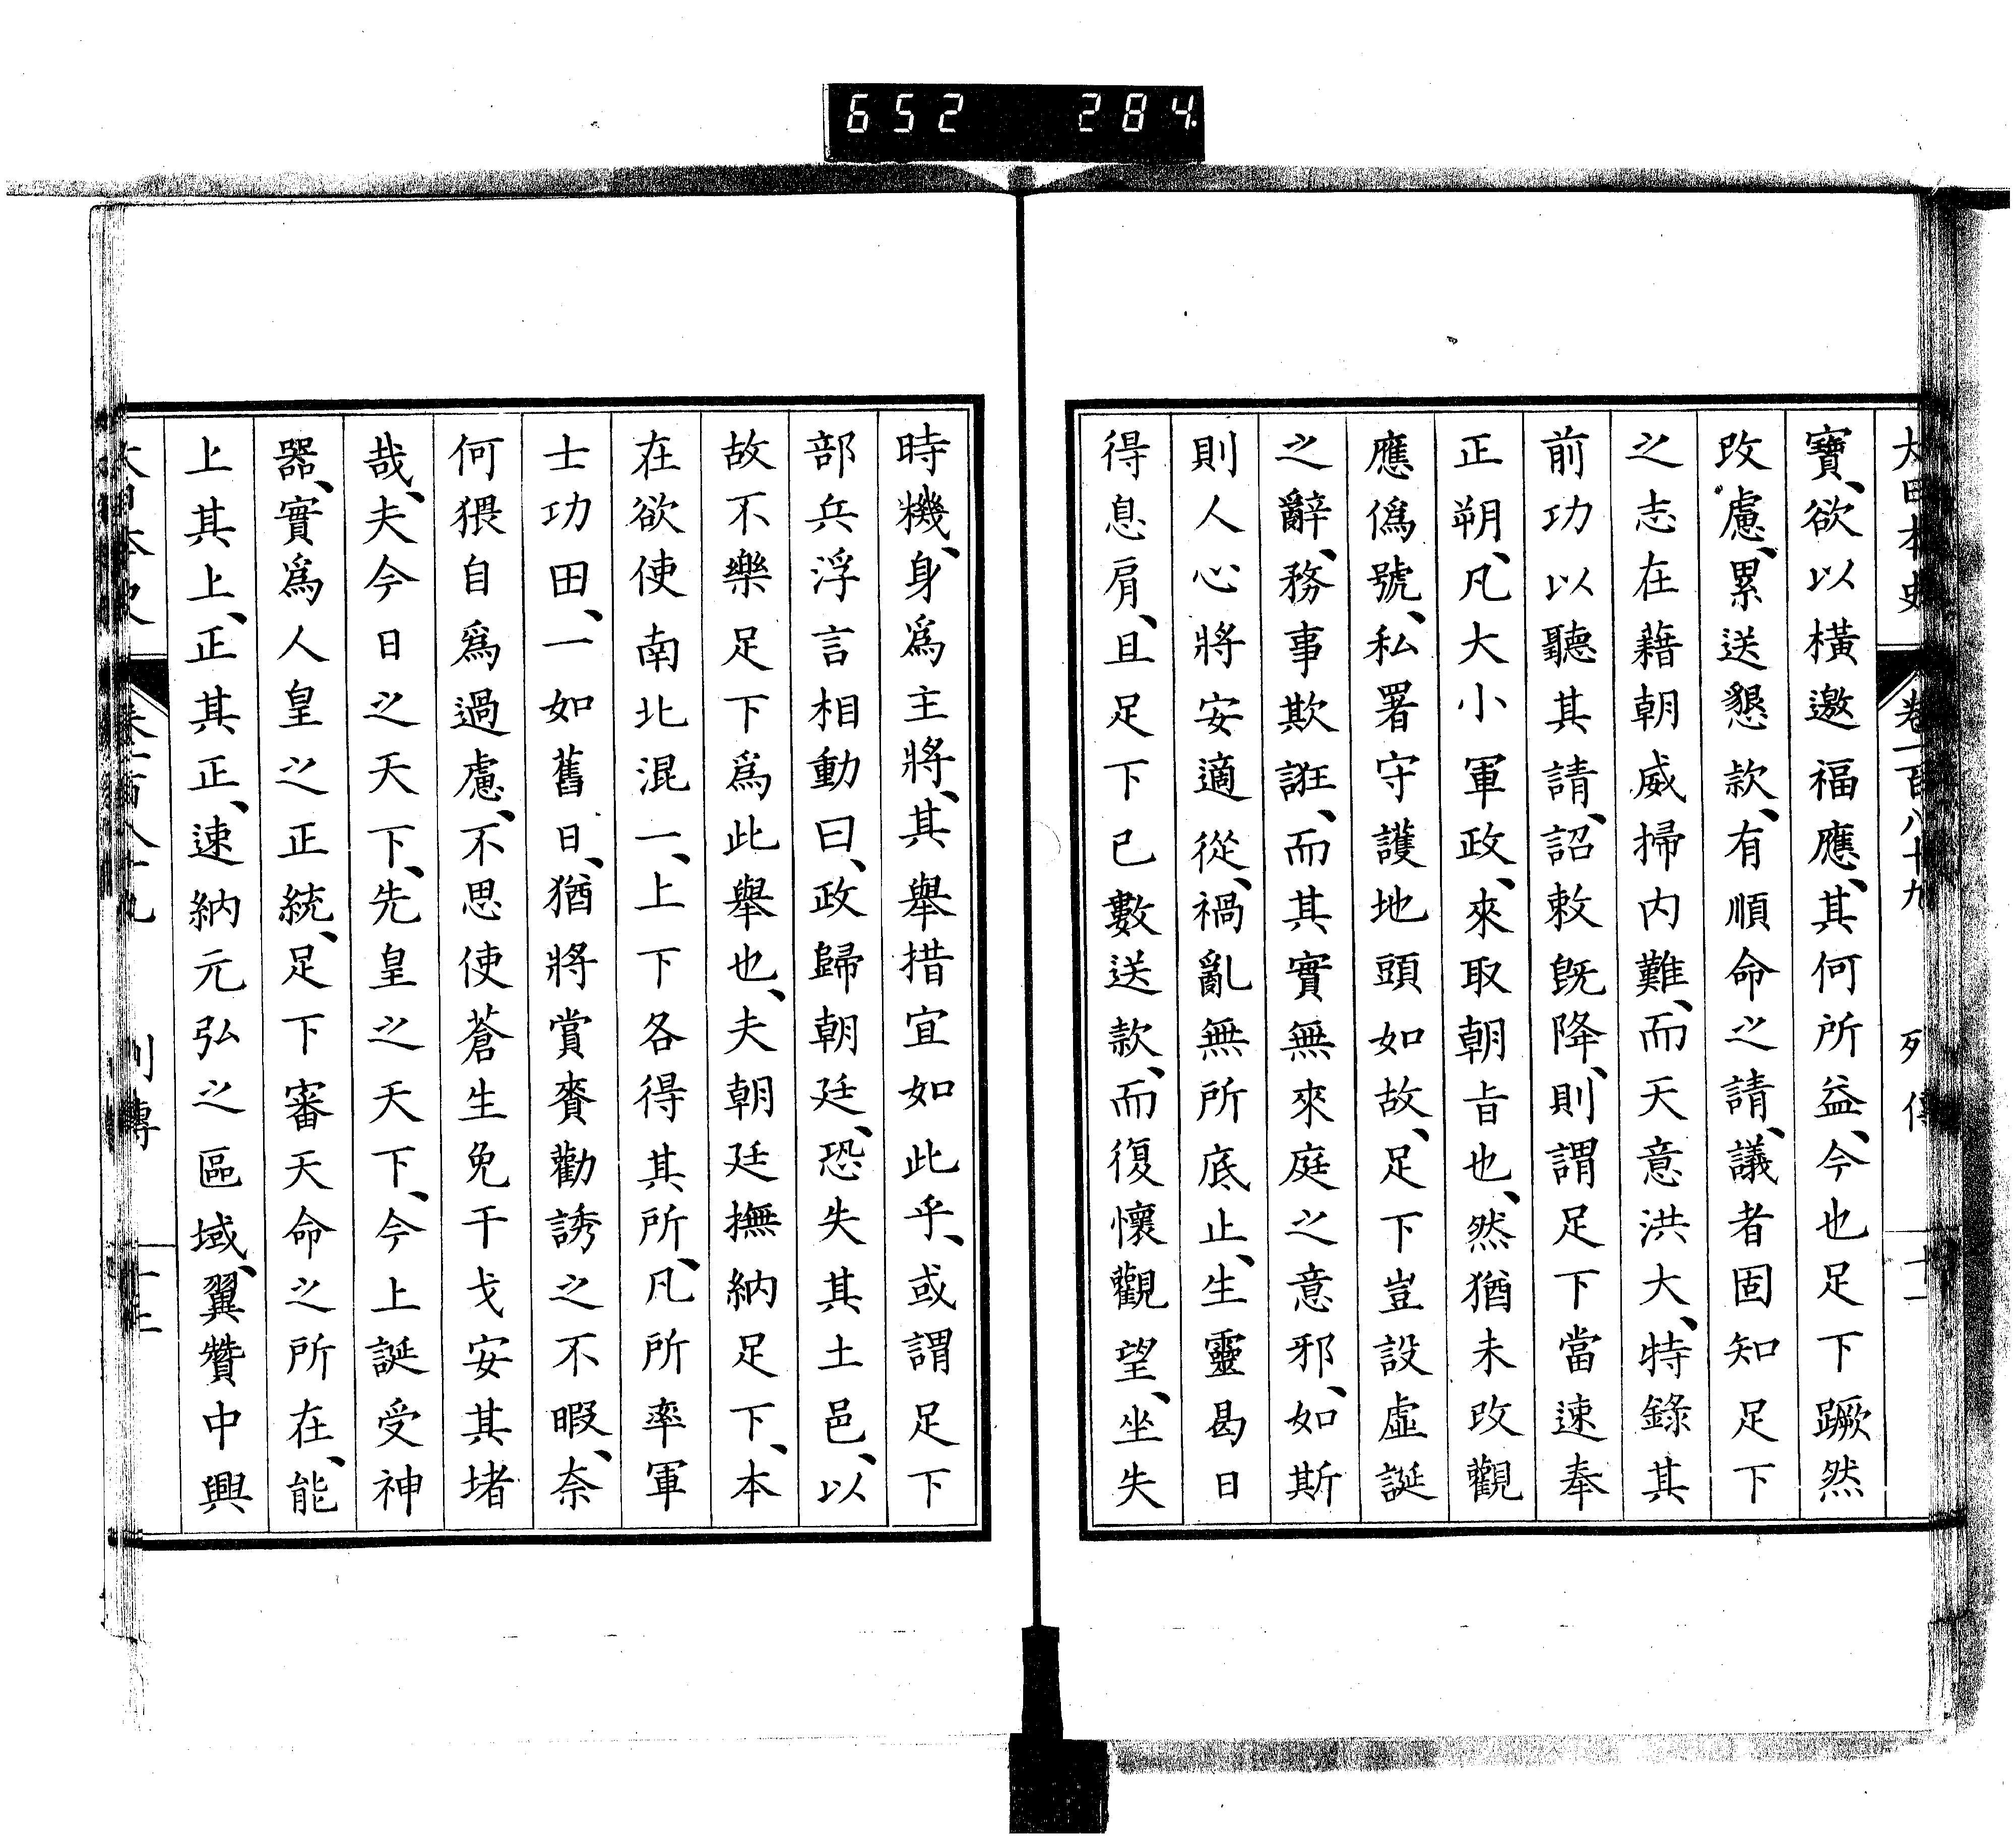 652 284
大日本史 卷一百八十九 列傳 十一
寶、欲以橫邀福應、其何所益、今也足下蹶然
改慮、累送懇款、有順命之請、議者固知足下
之志在藉朝威掃内難、而天意洪大、特錄其
前功以聽其請、詔敕既降、則謂足下當速奉
正朔、凡大小軍政、來取朝旨也、然猶未改觀
應僞號、私署守護地頭如故、足下豈設虛誕
之辭、務事欺誑、而其實無來庭之意邪、如斯
則人心將安適從、禍亂無所底止、生靈曷日
得息肩、且足下已數送款、而復懷觀望、坐失
時機、身爲主將、其舉措宜如此乎、或謂足下
部兵浮言相動曰、政歸朝廷、恐失其土邑、以
故不樂足下爲此舉也、夫朝廷撫納足下、本
在欲使南北混一、上下各得其所、凡所率軍
士功田、一如舊日、猶將賞賚勸誘之不暇、奈
何猥自爲過慮、不思使蒼生免干戈安其堵
哉、夫今日之天下、先皇之天下、今上誕受神
器、實爲人皇之正統、足下審天命之所在、能
上其上、正其正、速納元弘之區域、翼贊中興